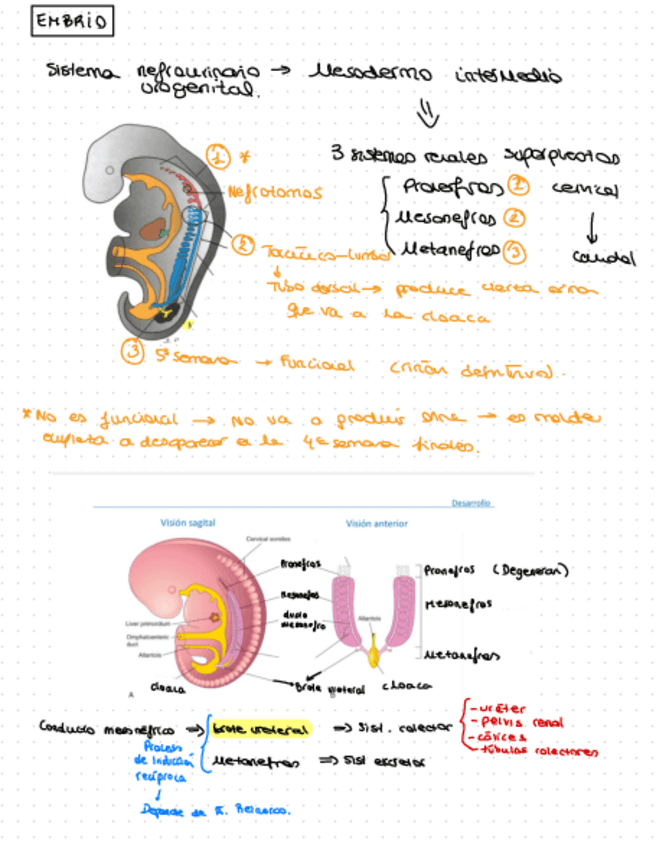 EMBRIO
Sistema nefrourinario → Mesodermo intermedio
urogenital.
⇓
3 sistemas renales superpuestos
Pronefros ① cervical
Mesonefros ②
↓
Metanefros ③ caudal
① *
Nefrotomos
② Torácico-lumbar
↓
Tubo dorsal → produce cierta orina
que va a la cloaca
③ 5ª semana → Funcional (riñón definitivo)..
* No es funcional → No va a producir orina → es molde
empieza a desaparecer a la 4ª semana finales.
Desarrollo
Visión sagital
Visión anterior
Cervical somites
Pronefros
Pronefros (Degeneran)
Mesonefros
Mesonefros
ducto
mesonefro
Allantois
Liver primordium
Omphaloenteric
duct
Allantois
Metanefros
cloaca
Brote ureteral
cloaca
A
Conducto mesonéfrico ⇒ brote ureteral ⇒ Sist. colector
- uréter
- pelvis renal
- cálices
- túbulos colectores
Metanefros ⇒ Sist excretor
Proceso
de inducción
recíproca
↓
Depende de